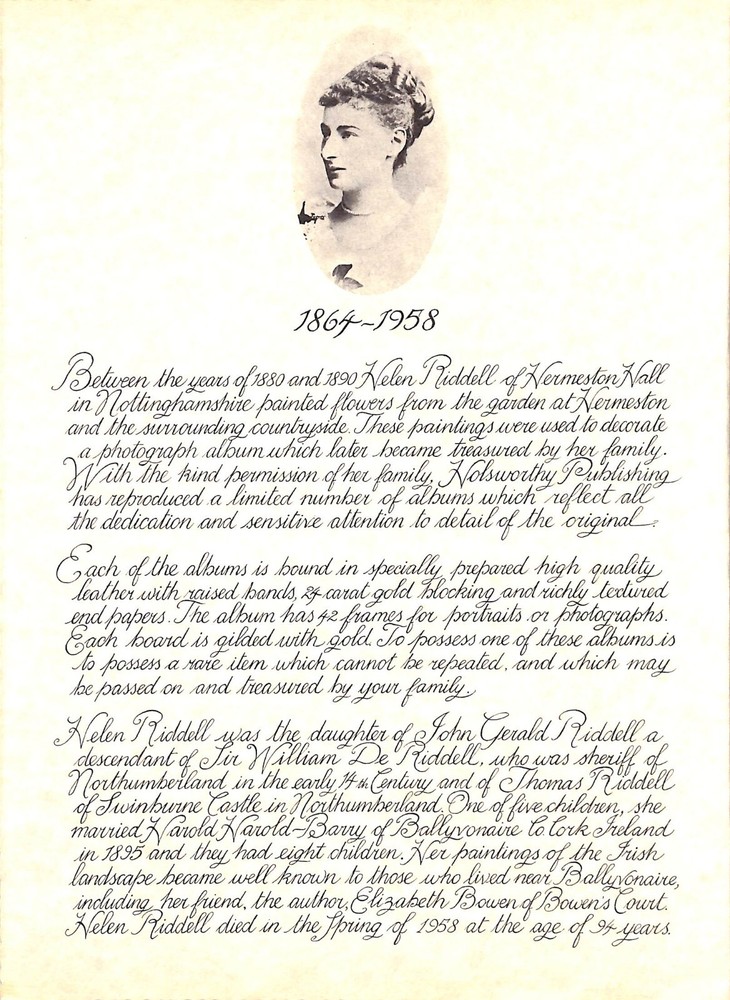 1864-1958
Between the years of 1880 and 1890 Helen Riddell of Hermeston Hall
in Nottinghamshire painted flowers from the garden at Hermeston
and the surrounding countryside. These paintings were used to decorate
a photograph album which later became treasured by her family.
With the kind permission of her family, Holsworthy Publishing
has reproduced a limited number of albums which reflect all
the dedication and sensitive attention to detail of the original.
Each of the albums is bound in specially prepared high quality
leather with raised bands, 24 carat gold blocking and richly textured
end papers. The album has 42 frames for portraits or photographs.
Each board is gilded with gold. To possess one of these albums is
to possess a rare item which cannot be repeated, and which may
be passed on and treasured by your family.
Helen Riddell was the daughter of John Gerald Riddell a
descendant of Sir William De Riddell, who was sheriff of
Northumberland in the early 14th. Century and of Thomas Riddell
of Swinburne Castle in Northumberland. One of five children, she
married Harold Harold-Barry of Ballyvonaire Co Cork Ireland
in 1895 and they had eight children. Her paintings of the Irish
landscape became well known to those who lived near Ballyvonaire,
including her friend, the author, Elizabeth Bowen of Bowen's Court.
Helen Riddell died in the Spring of 1958 at the age of 94 years.